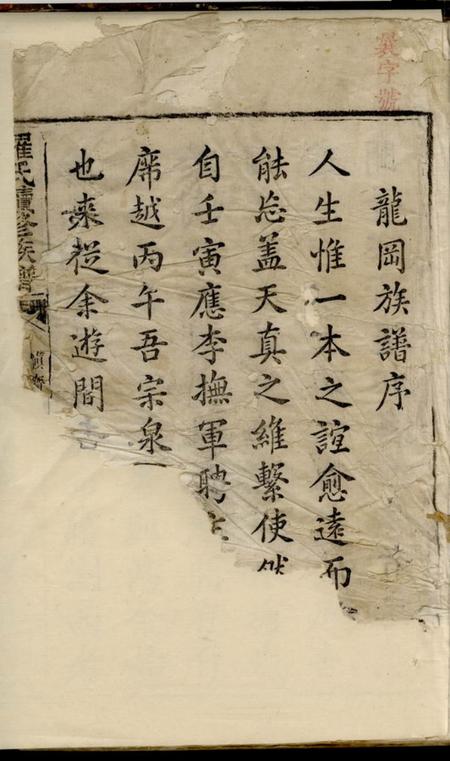 龍岡族譜序
人生惟一本之誼愈遠而
能忘盖天真之維繫使然
自壬寅應李撫軍聘
席越丙午吾宗泉
也來從余遊間
羅氏續修族譜
彛字號